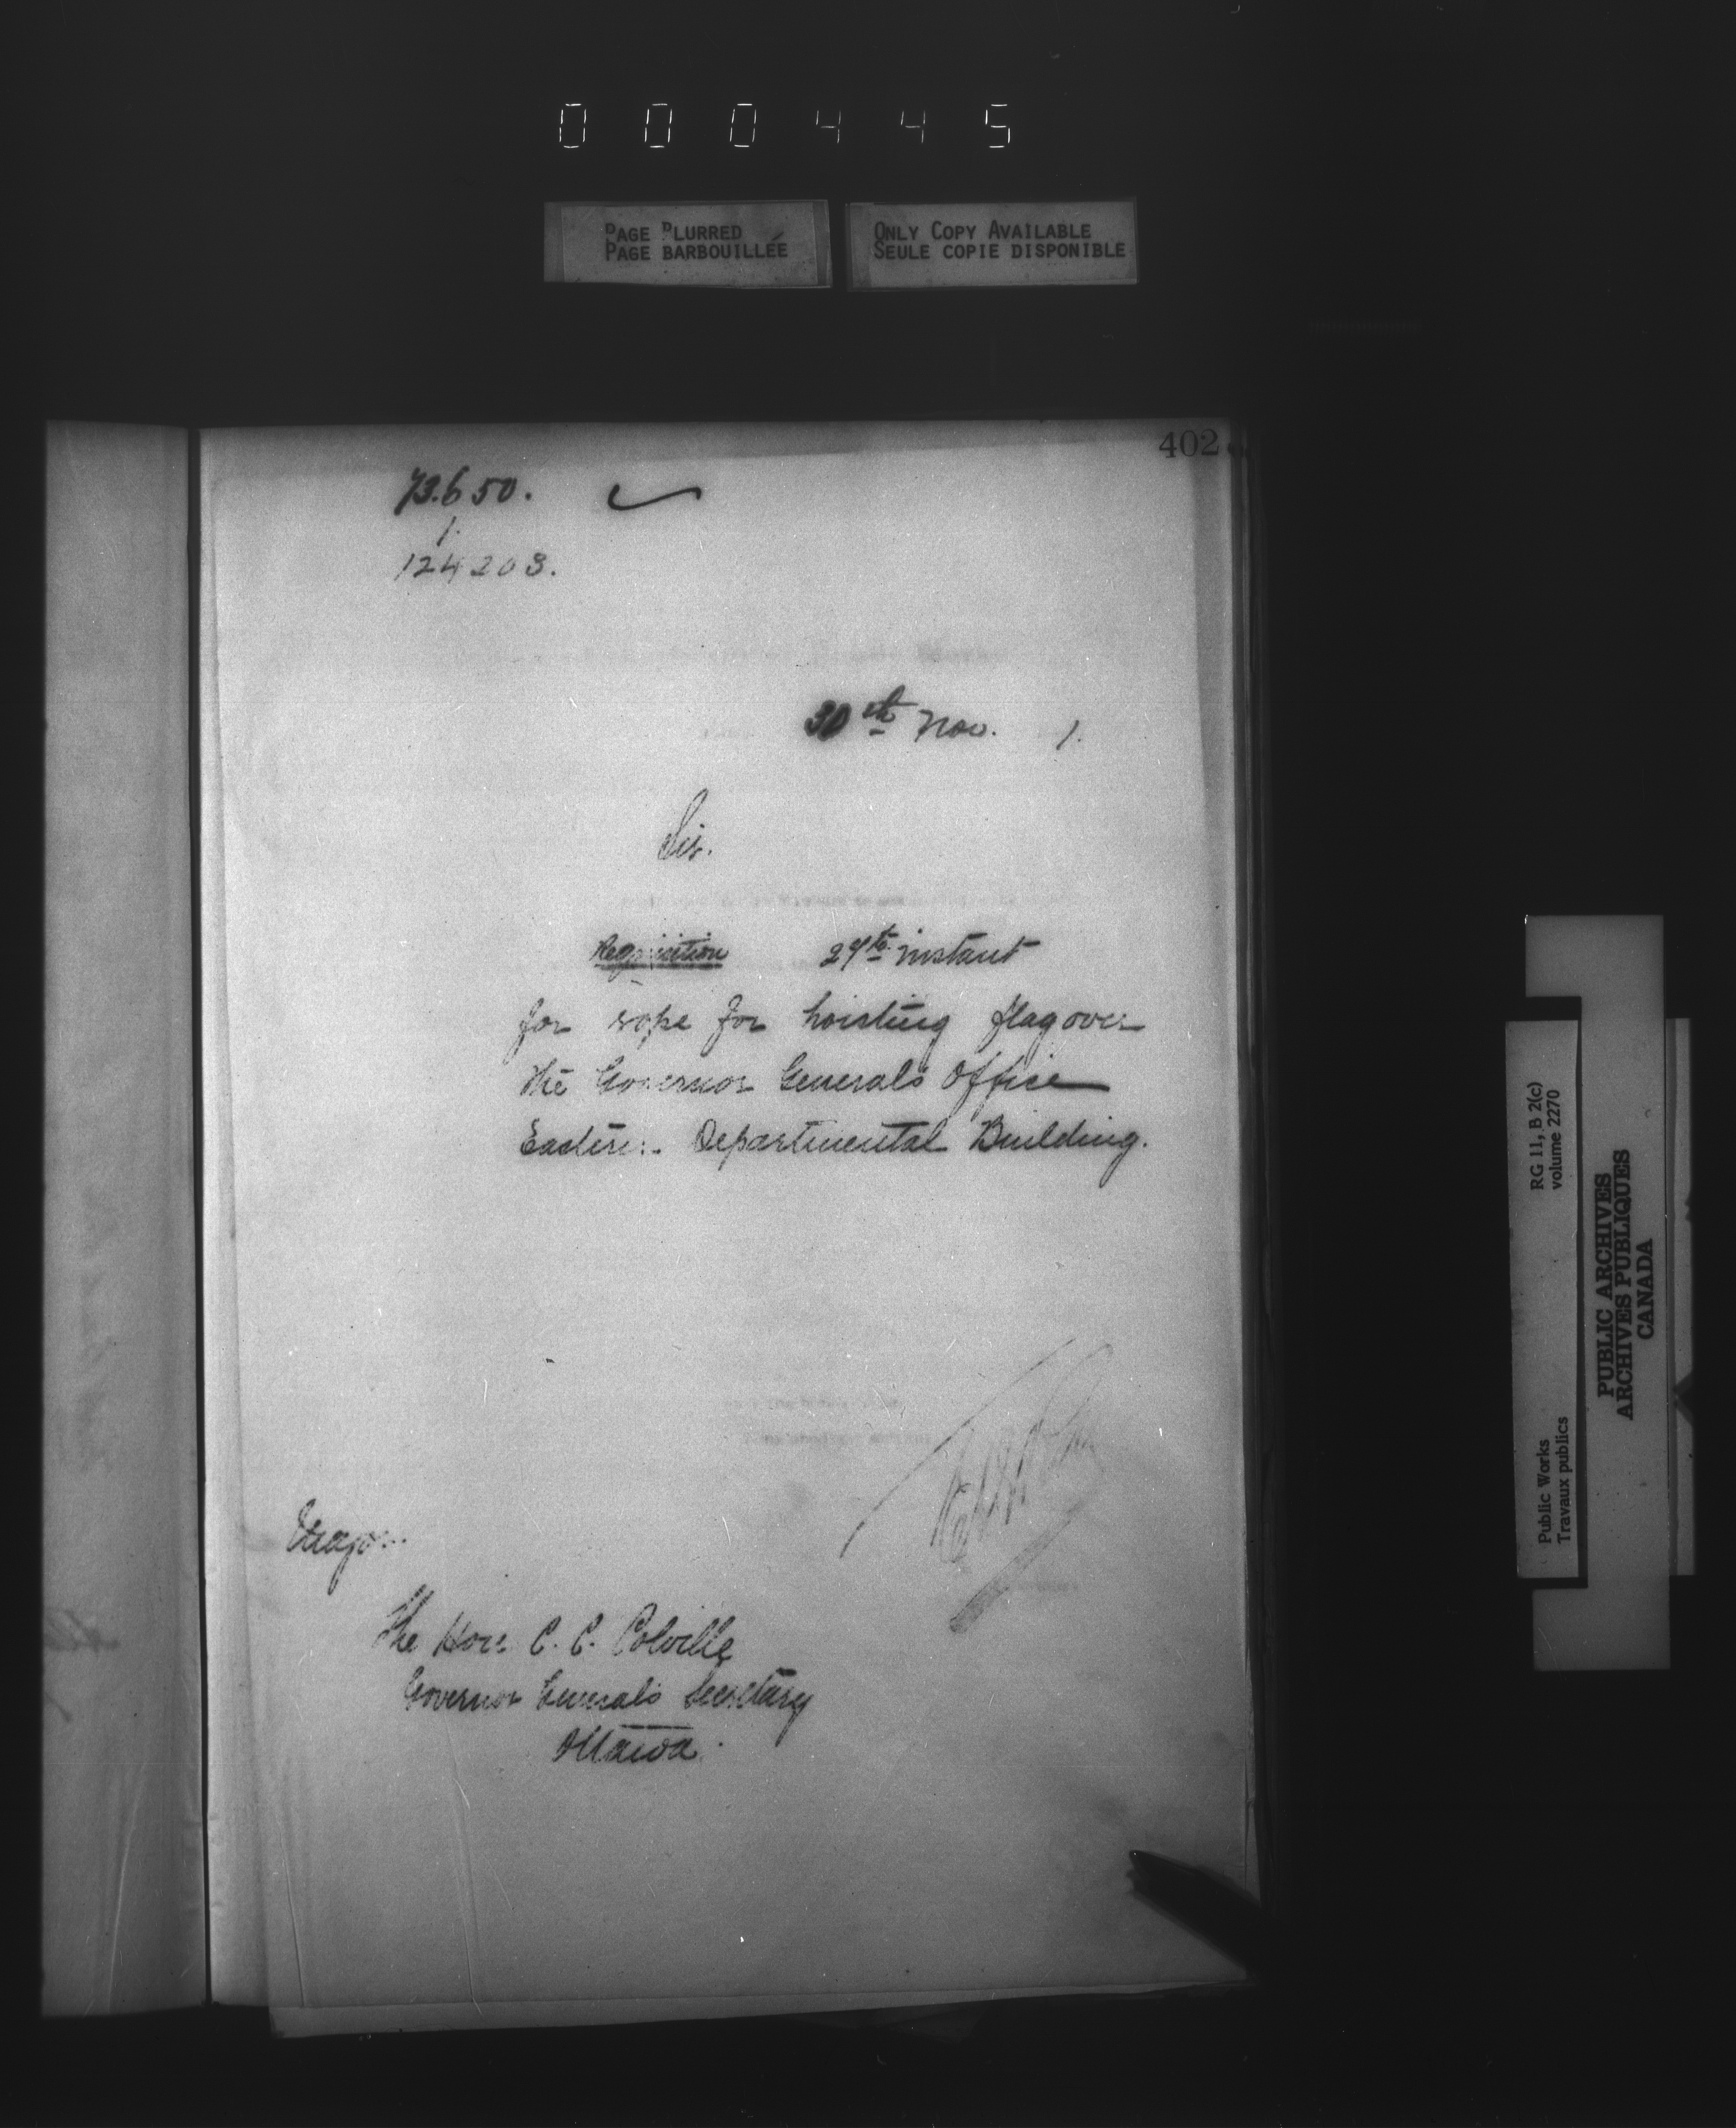 000445
PAGE BLURRED
PAGE BARBOUILLÉE
ONLY COPY AVAILABLE
SEULE COPIE DISPONIBLE
402
73.650.
1.
124203.
30th Nov. 1.
Sir.
Requisition 29th instant
for rope for hoisting flag over
the Governor Generals Office
Eastern Departmental Building.
Major
The Hon. C. C. Colville
Governor Generals Secretary
Ottawa.
RG 11, B 2(c)
volume 2270
Public Works
Travaux publics
PUBLIC ARCHIVES
ARCHIVES PUBLIQUES
CANADA